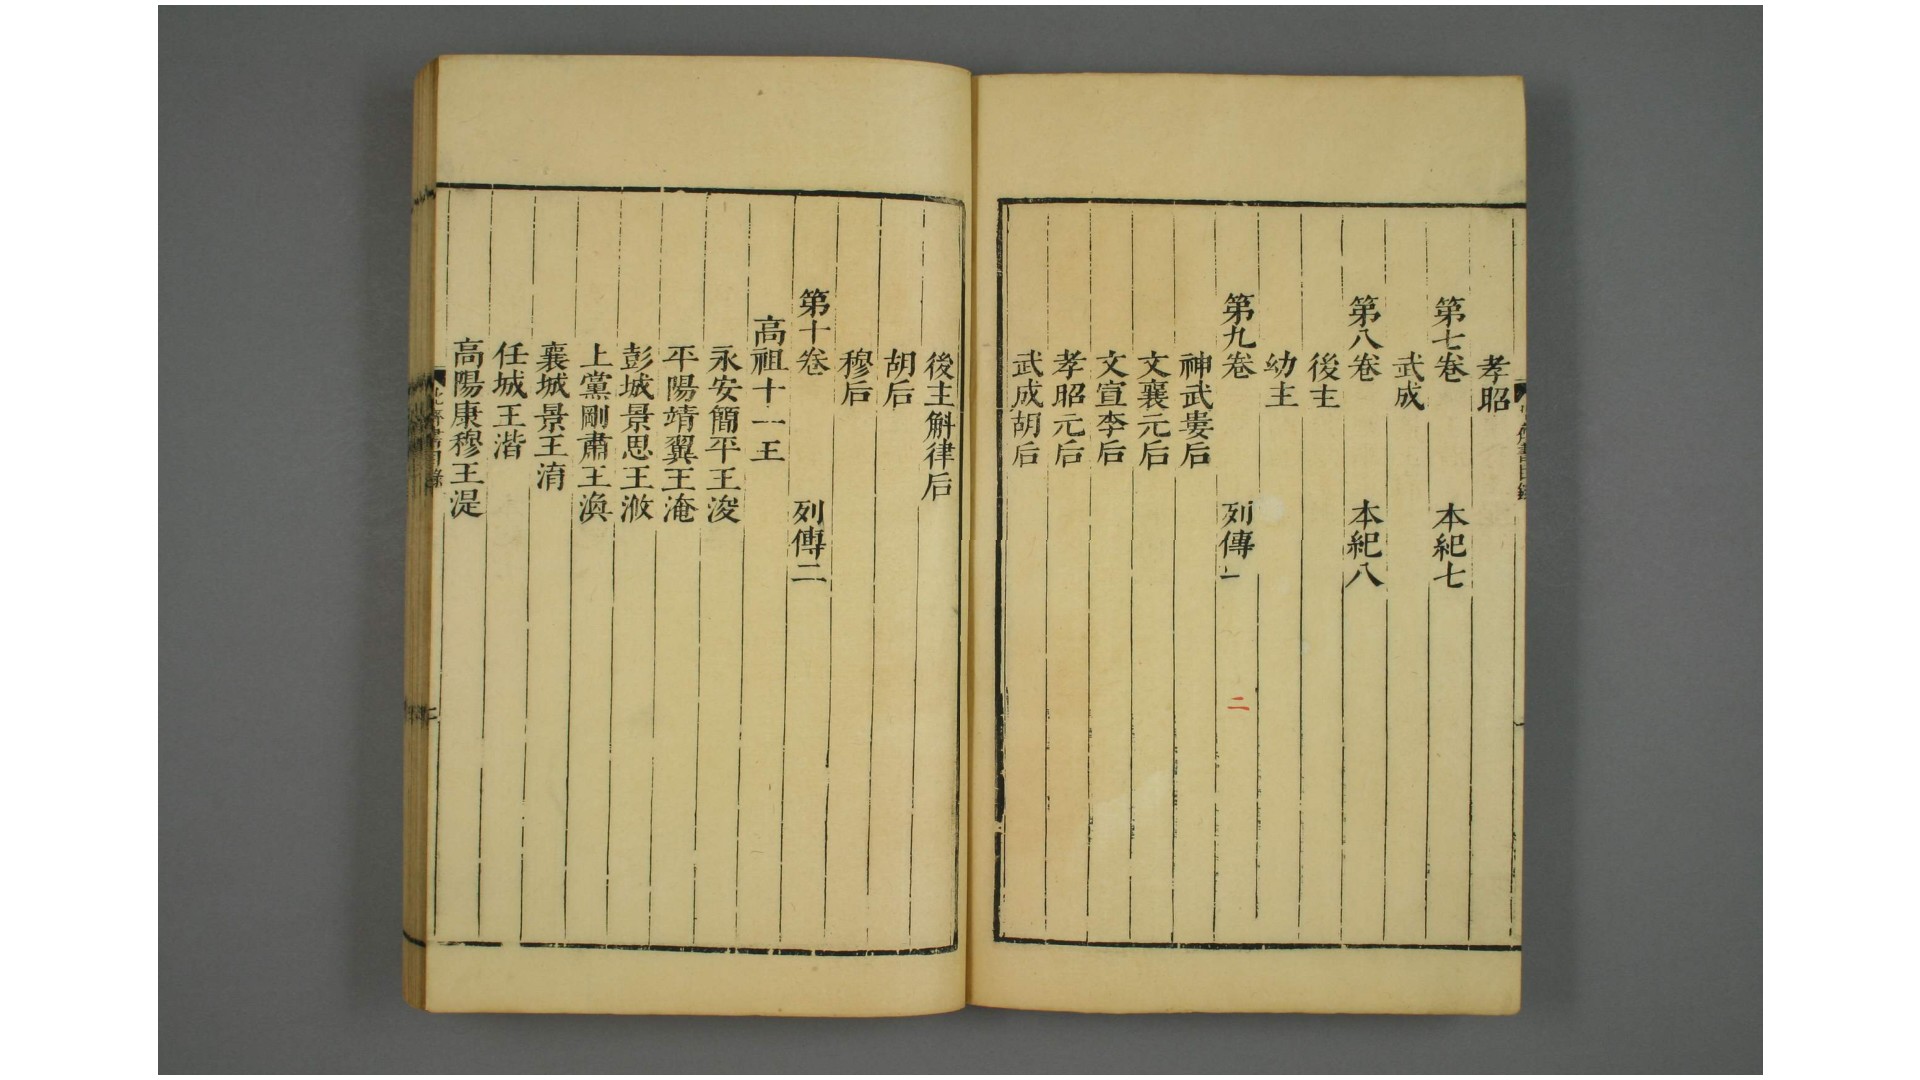 孝昭
第七卷 本紀七
武成
第八卷 本紀八
後主
幼主
第九卷 列傳一
二
神武婁后
文襄元后
文宣李后
孝昭元后
武成胡后
後主斛律后
胡后
穆后
第十卷 列傳二
高祖十一王
永安簡平王浚
平陽靖翼王淹
彭城景思王浟
上黨剛肅王渙
襄城景王淯
任城王湝
高陽康穆王湜
北齊書目錄